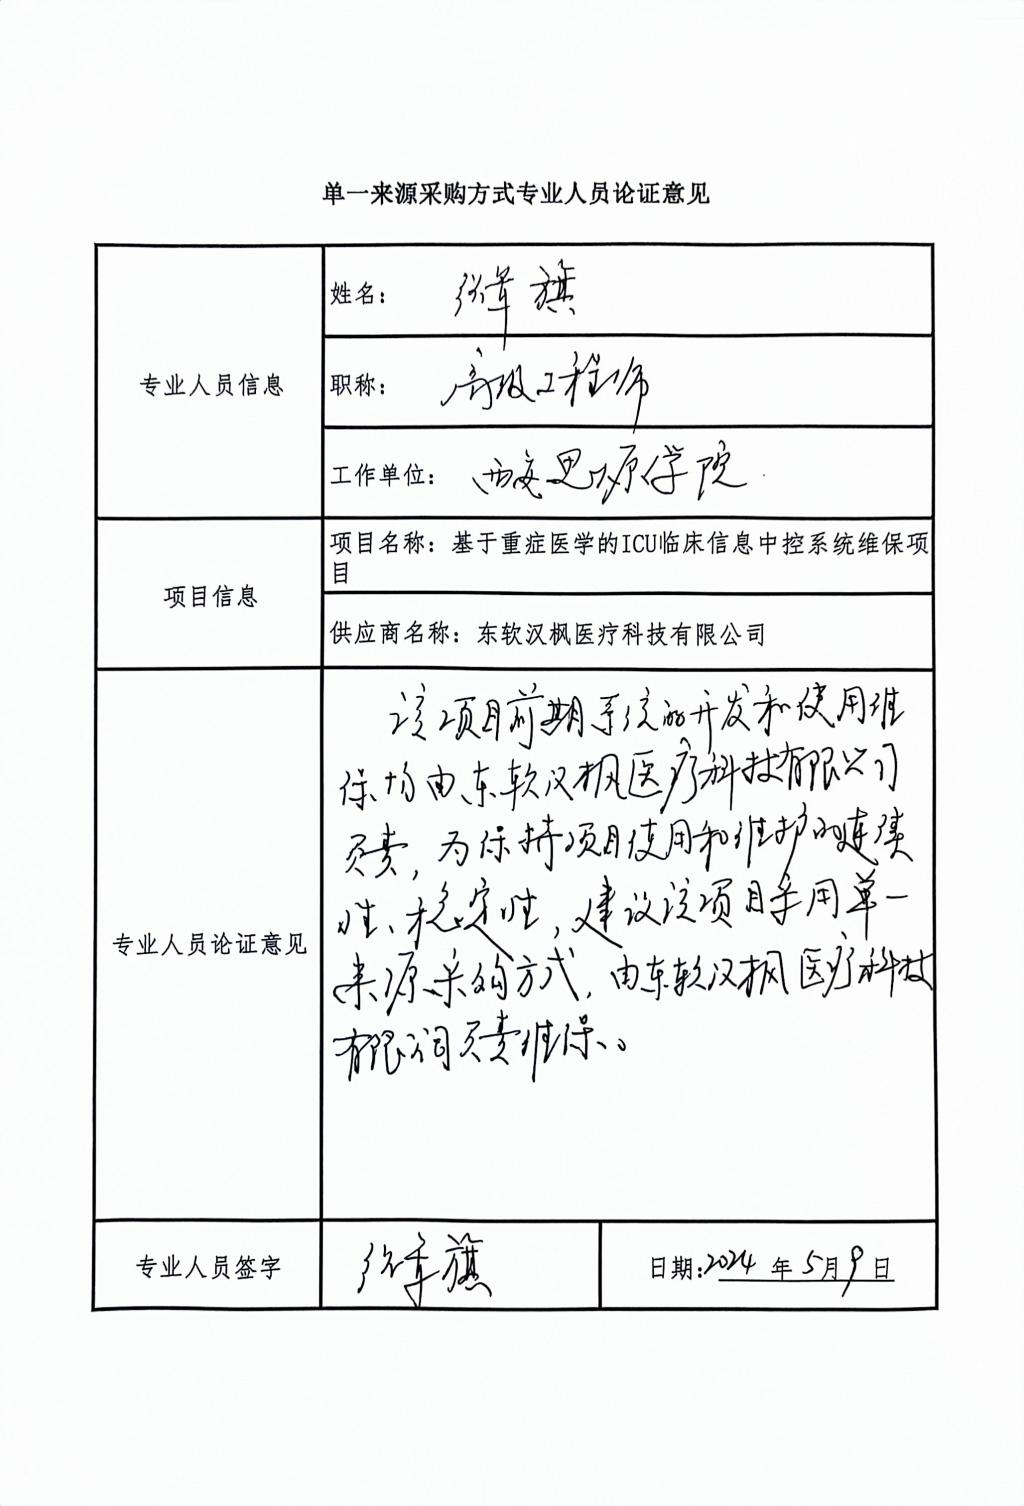 单一来源采购方式专业人员论证意见
专业人员信息
姓名：
职称：高级工程师
工作单位：西安思源学院
项目信息
项目名称：基于重症医学的ICU临床信息中控系统维保项
目
供应商名称：东软汉枫医疗科技有限公司
专业人员论证意见
该项目前期系统的开发和使用维
保均由东软汉枫医疗科技有限公司
负责，为保持项目使用和维护的连续
性、稳定性，建议该项目采用单一
来源采购方式，由东软汉枫医疗科技
有限公司负责维保。
专业人员签字
日期：2024年5月9日